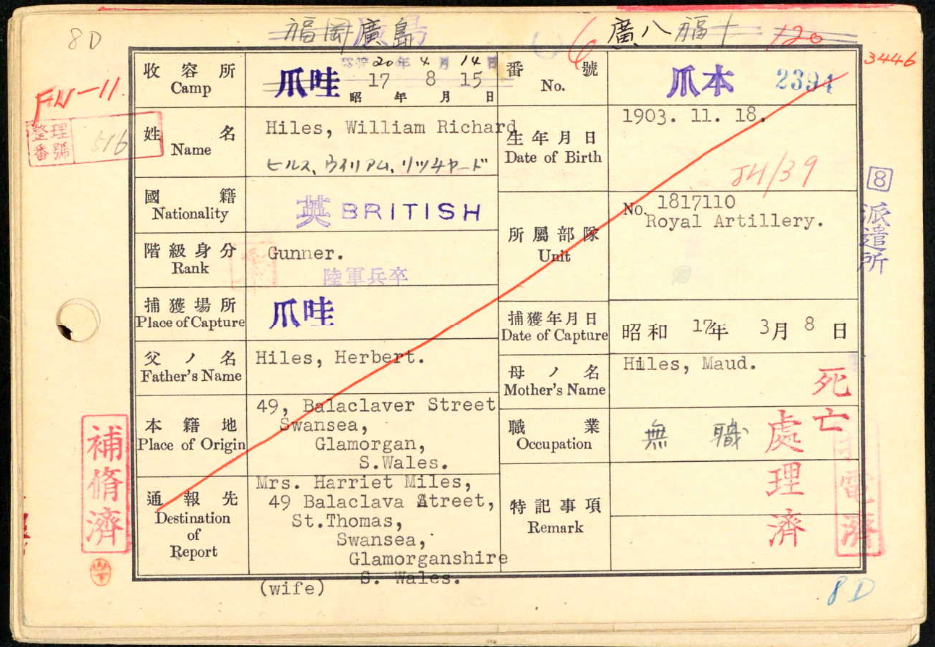 8D
福岡廣島
廣八福十
6
120
3446
FN-11.
整理番號
516
收容所
Camp
爪哇
20年4月14日
17 8 15
昭 年 月 日
番號
No.
爪本
2394
姓名
Name
Hiles, William Richard
ヒルス、ウイリアム、リツチヤード
生年月日
Date of Birth
1903. 11. 18.
J4/39
國籍
Nationality
英 BRITISH
所屬部隊
Unit
No. 1817110
Royal Artillery.
8
派遣所
階級身分
Rank
Gunner.
陸軍兵卒
捕獲場所
Place of Capture
爪哇
捕獲年月日
Date of Capture
昭和 17年 3月 8日
父ノ名
Father's Name
Hiles, Herbert.
母ノ名
Mother's Name
Hiles, Maud.
死亡
處理濟
本籍地
Place of Origin
49, Balaclaver Street
Swansea,
Glamorgan,
S.Wales.
職業
Occupation
無職
通報先
Destination
of
Report
Mrs. Harriet Miles,
49 Balaclava Street,
St.Thomas,
Swansea,
Glamorganshire
S. Wales.
(wife)
特記事項
Remark
補脩濟
電濟
8D